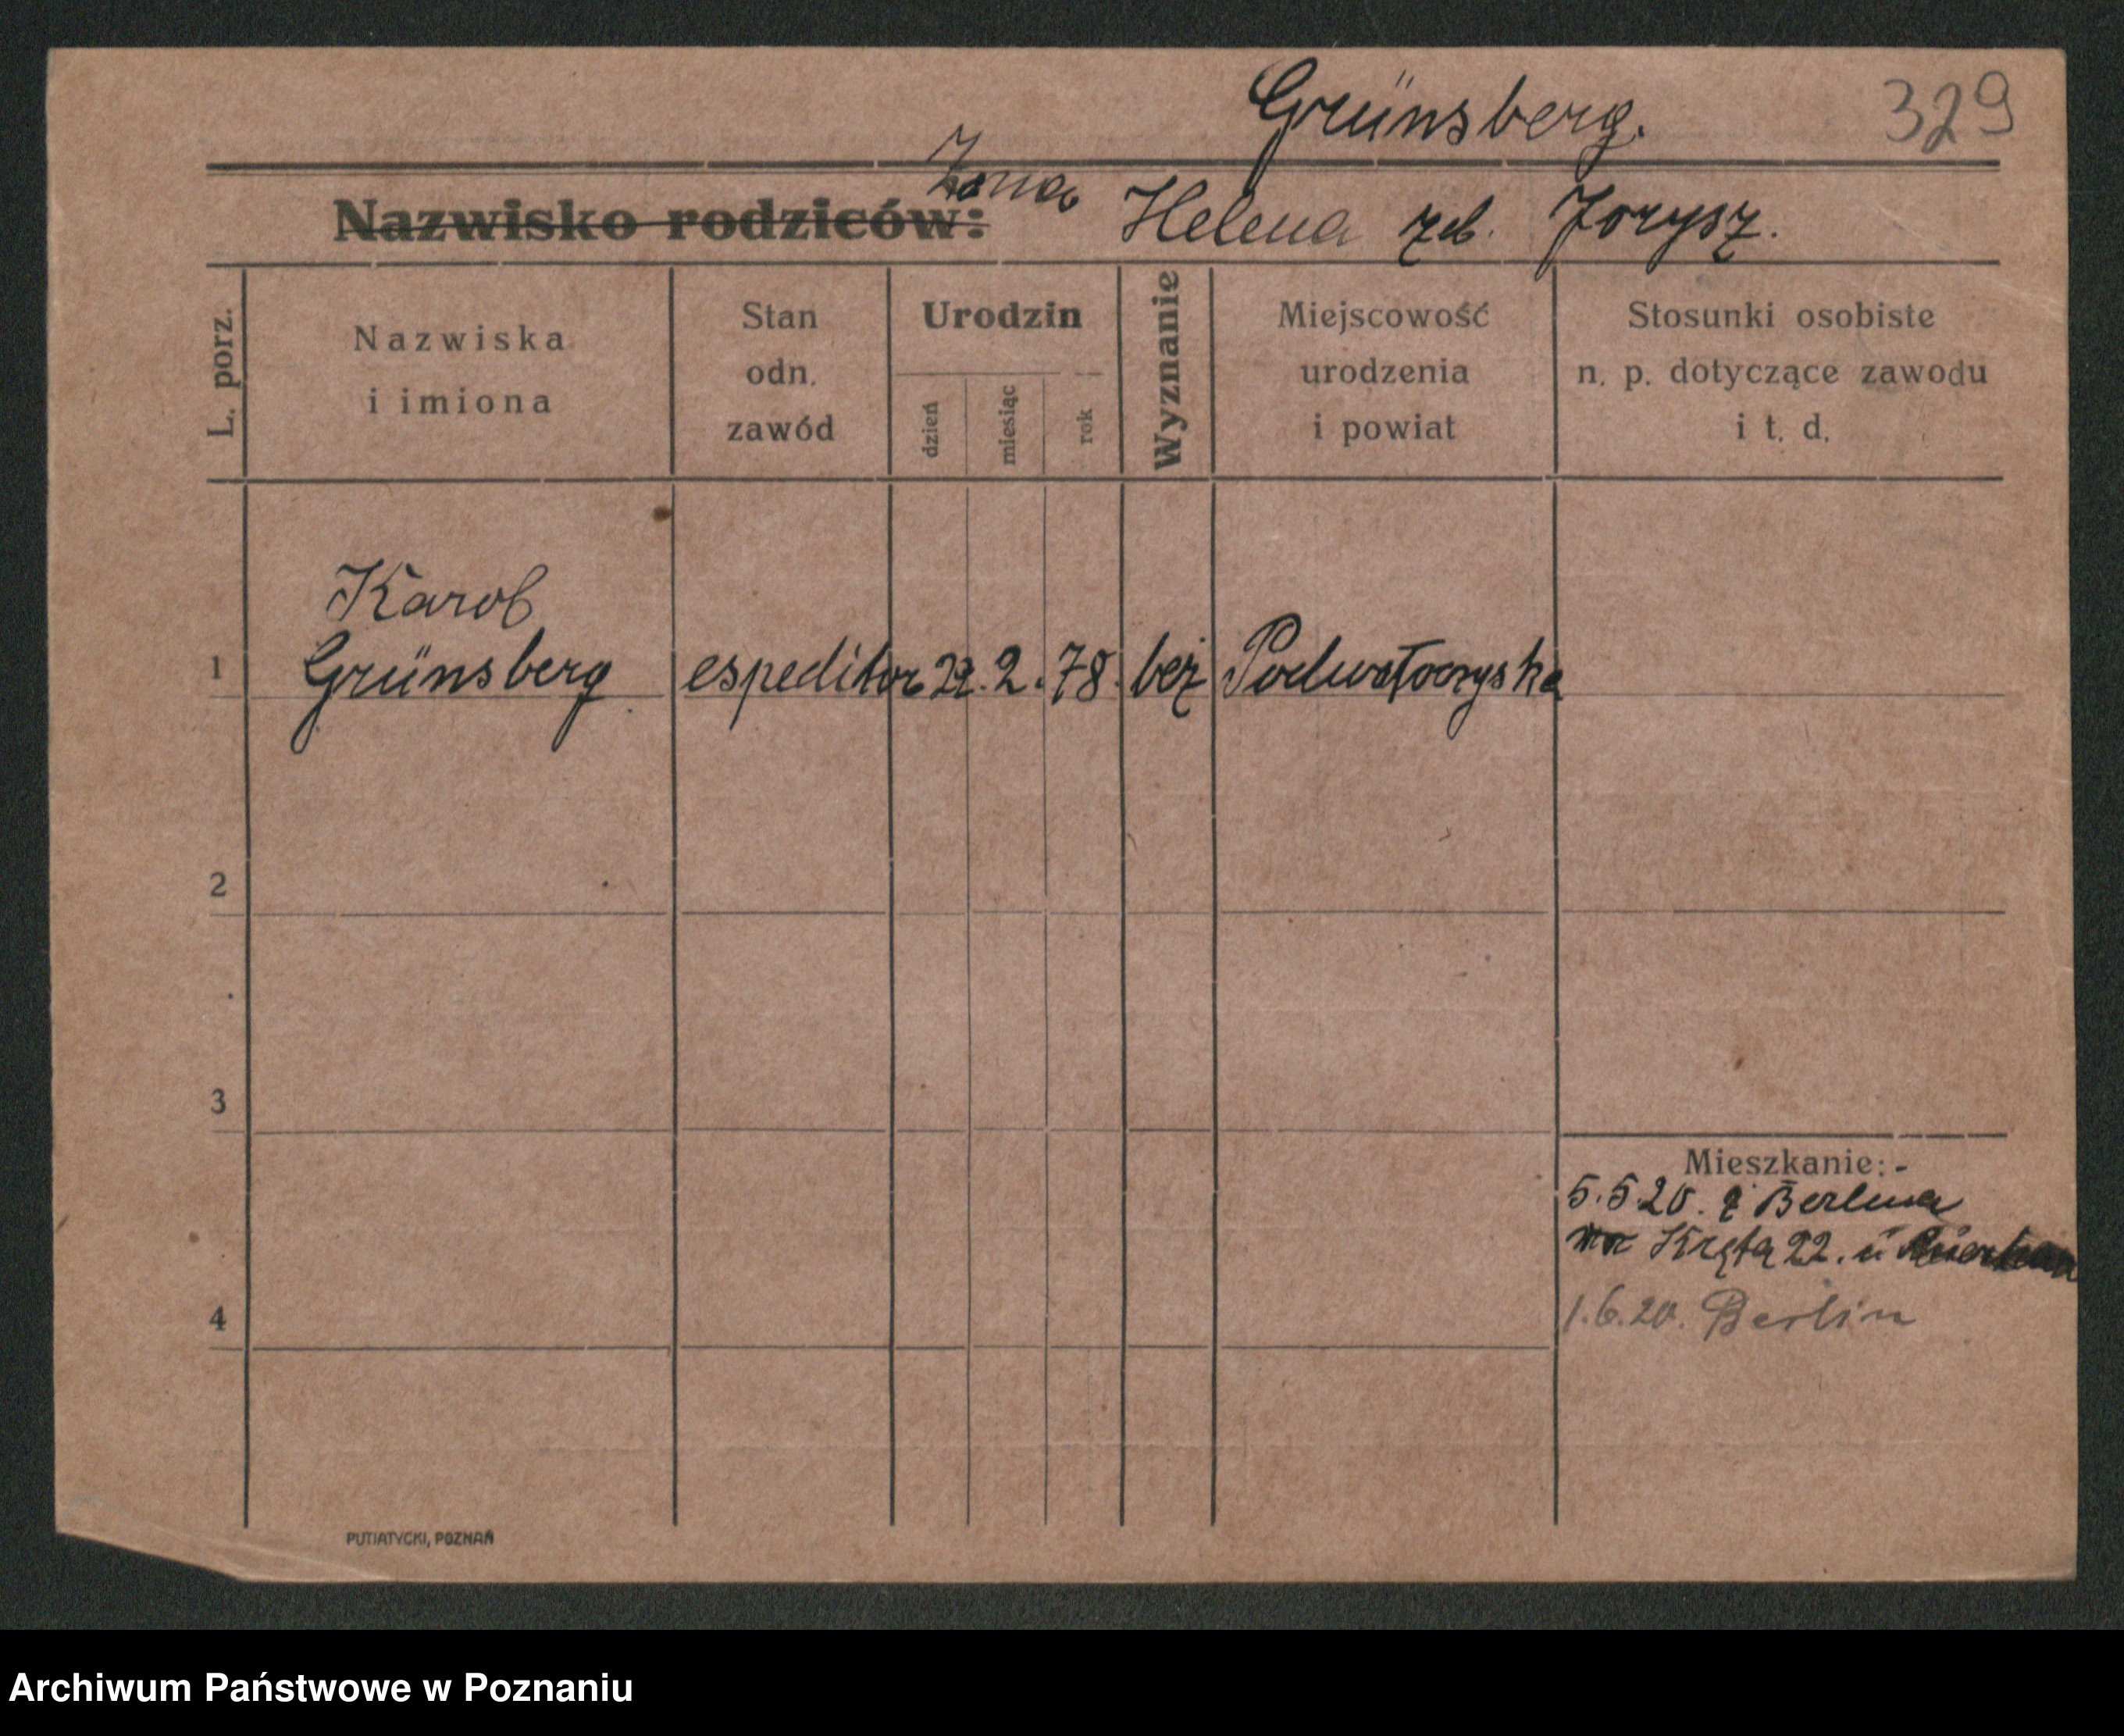 Grünsberg. 329
Żona
Nazwisko rodziców: Helena Jorysz.
L. porz.
Nazwiska
i imiona
Stan
odn.
zawód
Urodzin
dzień
miesiąc
rok
Wyznanie
Miejscowość
urodzenia
i powiat
Stosunki osobiste
n. p. dotyczące zawodu
i t. d.
Karol
1 Grünsberg espeditor 22. 2. 78. bez Podwołoczyska
2
3
Mieszkanie:-
5.5.20. z Berlina
Kręta 22. u
4 1.6.20. Berlin
PUTIATYCKI, POZNAŃ
Archiwum Państwowe w Poznaniu